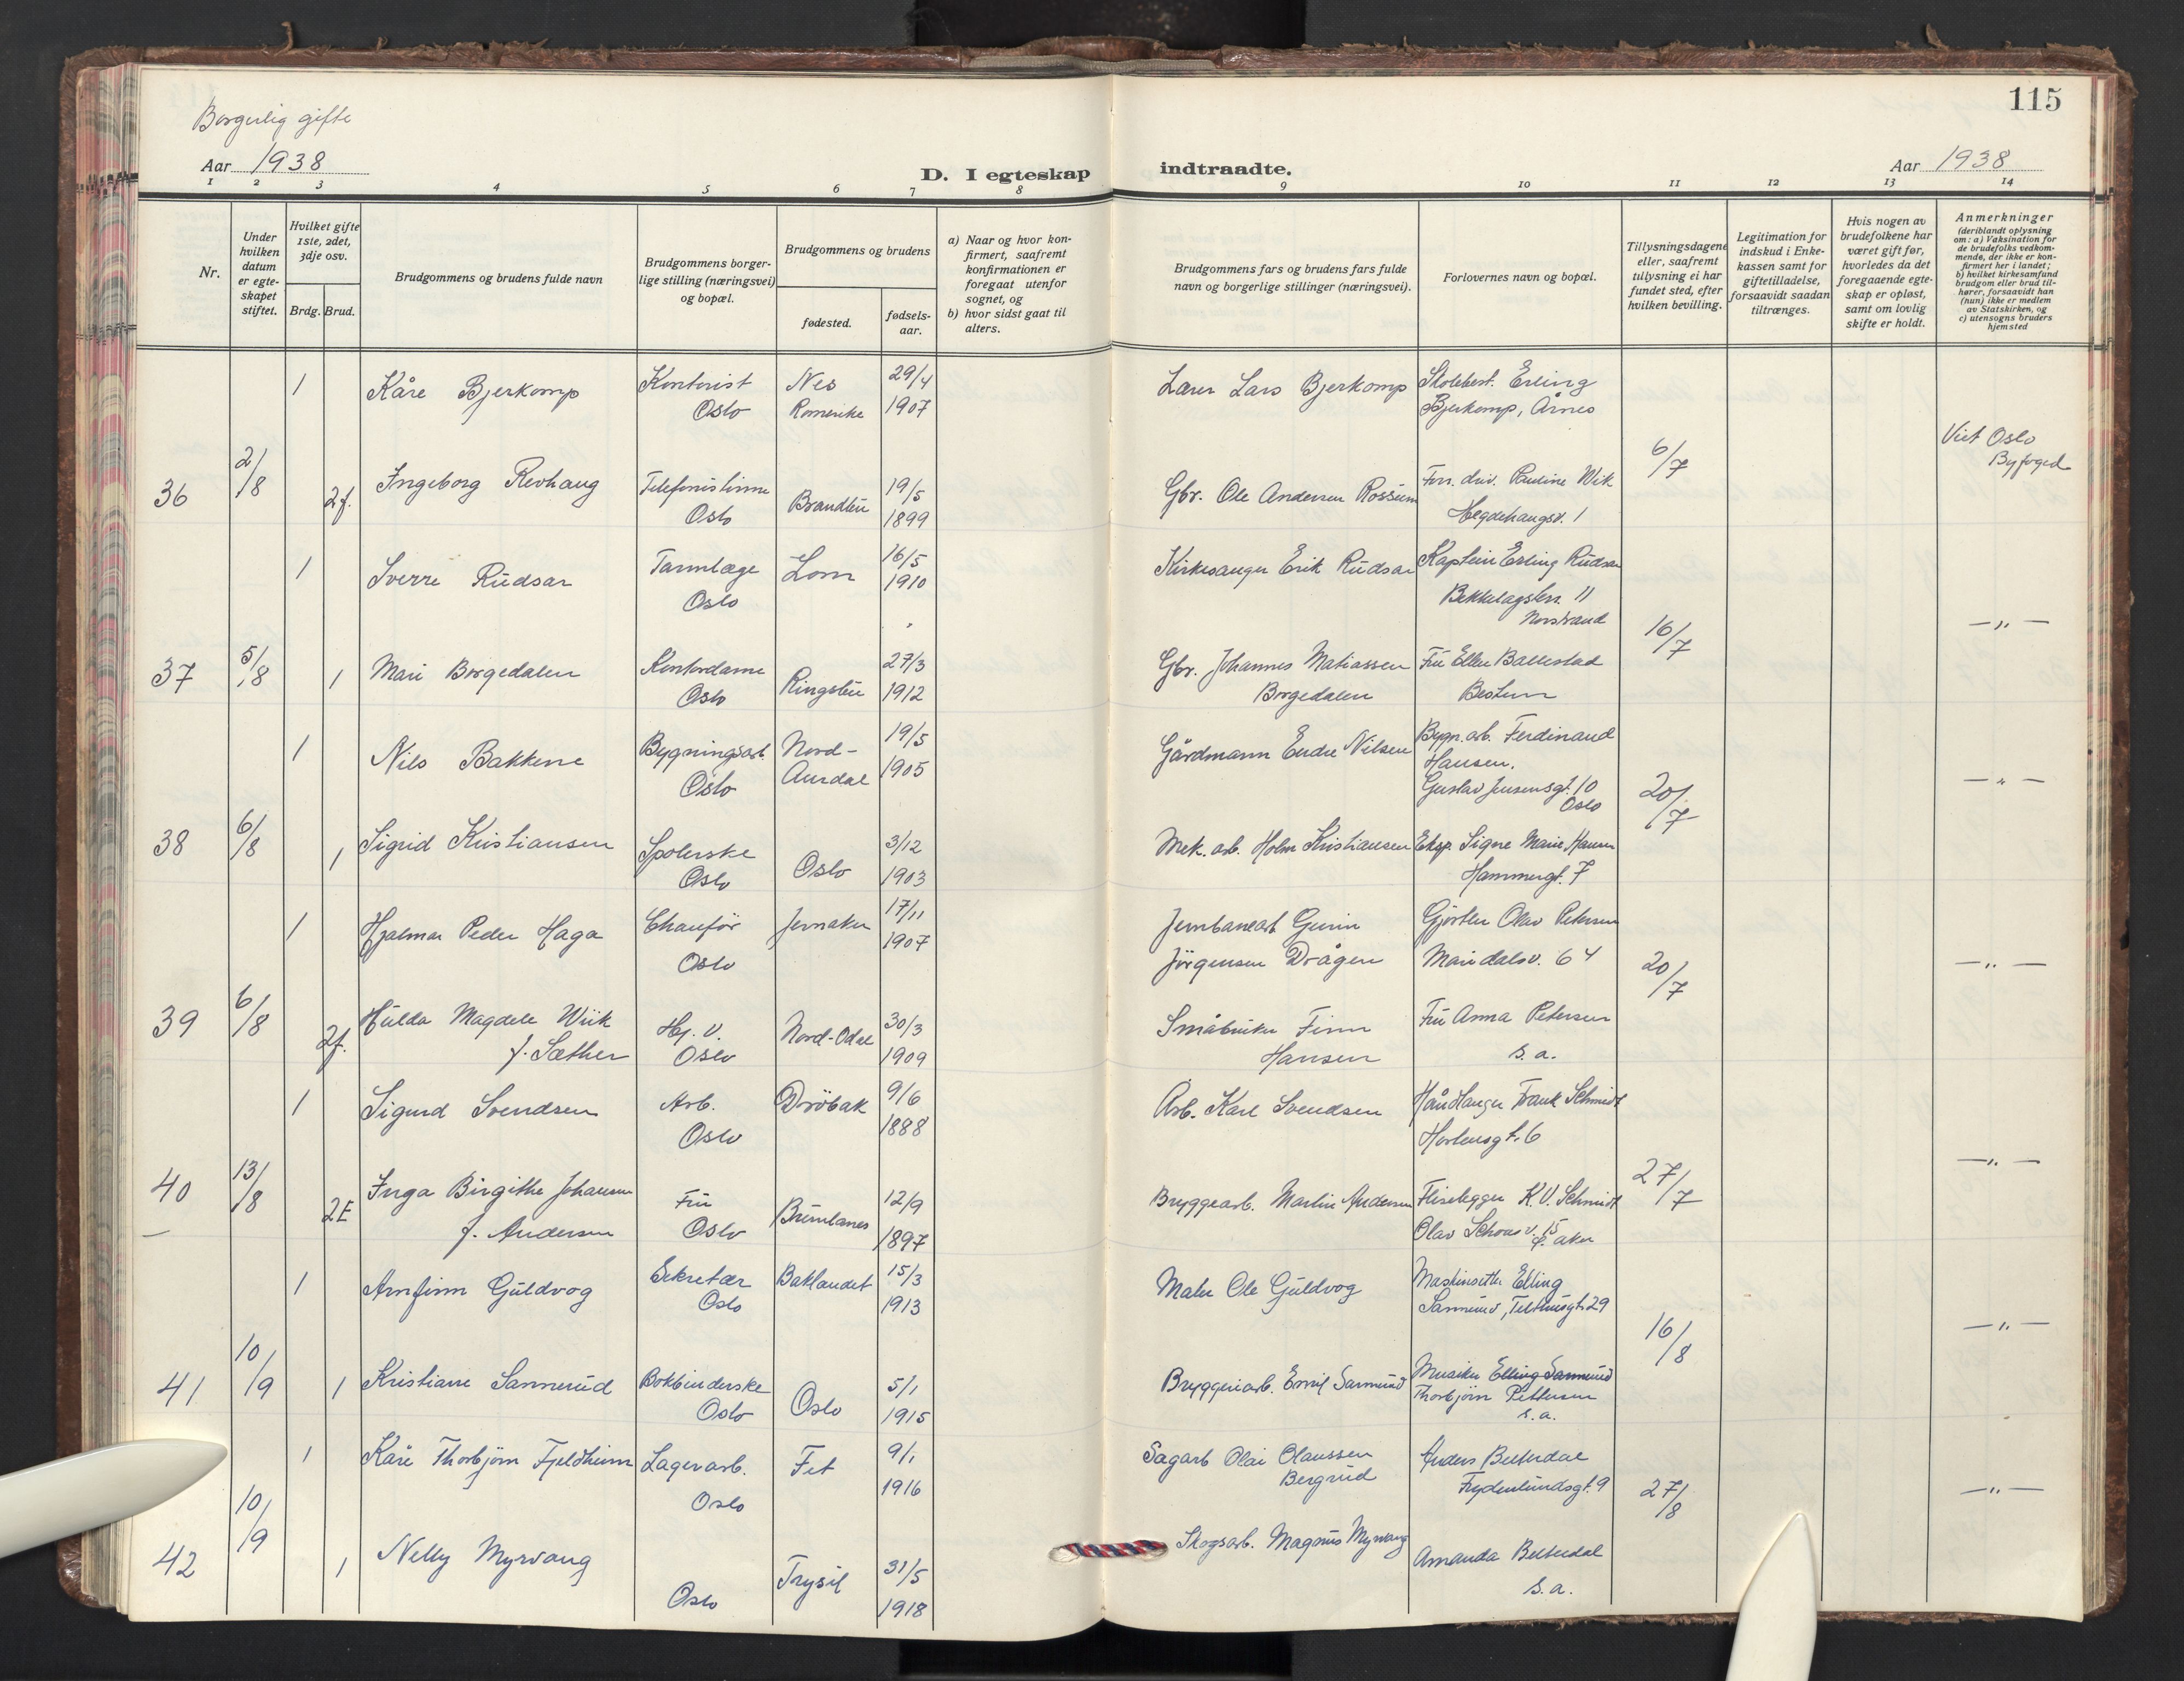 115
Borgerlig gifte
Aar 1938
D. I egteskap indtraadte.
Aar 1938
1 2 3 4 5 6 7 8 9 10 11 12 13 14
Nr.
Under hvilken datum er egteskapet stiftet.
Hvilket gifte 1ste, 2det, 3dje osv.
Brdg. Brud.
Brudgommens og brudens fulde navn
Brudgommens borgerlige stilling (næringsvei) og bopæl.
Brudgommens og brudens
fødested.
fødselsaar.
a) Naar og hvor konfirmert, saafremt konfirmationen er foregaat utenfor sognet, og
b) hvor sidst gaat til alters.
Brudgommens fars og brudens fars fulde navn og borgerlige stillinger (næringsvei).
Forlovernes navn og bopæl.
Tillysningsdagene eller, saafremt tillysning ei har fundet sted, efter hvilken bevilling.
Legitimation for indskud i Enkekassen samt for giftetilladelse, forsaavidt saadan tiltrænges.
Hvis nogen av brudefolkene har været gift før, hvorledes da det foregaaende egteskap er opløst, samt om lovlig skifte er holdt.
Anmerkninger
(deriblandt oplysning om: a) Vaksination for de brudefolks vedkommende, der ikke er konfirmert her i landet;
b) hvilket kirkesamfund brudgom eller brud tilhører, forsaavidt han (hun) ikke er medlem av Statskirken, og
c) utensogns bruders hjemsted
1 Kåre Bjerkomp Kontorist Oslo Nes Romerike 29/4 1907 Lærer Lars Bjerkomp Erling Bjerkomp, Årnes
36 2/8 2f. Ingeborg Revhaug Telefonistinne Oslo Brandbu 19/5 1899 Gbr. Ole Andersen Rossum Forr. driv. Pauline Wik Hegdehaugsv. 1 6/7 Viet Oslo Byfoged
1 Sverre Rudsar Tannlæge Oslo Lom 16/5 1910 Kirkesanger Erik Rudsar Kaptein Erling Rudsar Bekkelagsterr. 11 Norstrand
37 5/8 1 Mari Borgedalen Kontordame Oslo Ringebu 27/3 1912 Gbr. Johannes Matiassen Borgedalen Fru Ellen Ballestad Bestum 16/7 —"—
1 Nils Bakkene Bygningsarb. Oslo Nord-Aurdal 19/5 1905 Gårdmann Endre Nilsen Bygn.arb. Ferdinand Hansen. Gustav Jensensgt. 10 Oslo
38 6/8 1 Sigrid Kristiansen Spolerske Oslo Oslo 3/12 1903 Mek. arb. Holm Kristiansen Eksp. Signe Marie Hansen Hammergt. 7 20/7 —"—
1 Hjalmar Peder Haga Chauför Oslo Jevnaker 17/11 1907 Jernbanearb Jörgensen Drågen Gjörtler Olav Petersen Maridalsv. 64
39 6/8 2f. Hulda Magdele Wiik f. Sæther Hj. v. Oslo Nord-Odal 30/3 1909 Småbruker Finn Hansen Fru Anna Petersen s. a. 20/7 —"—
1 Sigurd Svendsen Arb. Oslo Dröbak 9/6 1888 Arb. Karl Svendsen Håndlanger Frank Schmidt Hortensgt. 6
40 13/8 2E Inga Birgithe Johansen f. Andersen Fru Oslo Brunlanes 12/9 1897 Bryggearb. Martin Andersen Fliselegger K.V. Schmidt Olav Schous v. 15 Ø. aker 27/7 —"—
1 Arnfinn Guldvog Sekretær Oslo Baklandet 15/3 1913 Maler Ole Guldvog Maskinsetter Elling Sannerud, Telthusgt. 29
41 10/9 1 Kristiane Sannerud Bokbinderske Oslo Oslo 5/1 1915 Bryggeriarb. Emil Sannerud Musiker Elling Sannerud Thorbjörn Pettersen s. a. 16/8 —"—
1 Kåre Thorbjörn Fjeldheim Lagerarb. Oslo Fet 9/1 1916 Sagarb Olai Olaussen Bergrud Anders Frydenlundsgt. 9
42 10/9 1 Nelly Myrvang Oslo Trysil 31/5 1918 Skogsarb. Magnus Myrvang Amanda s. a. 27/8 —"—